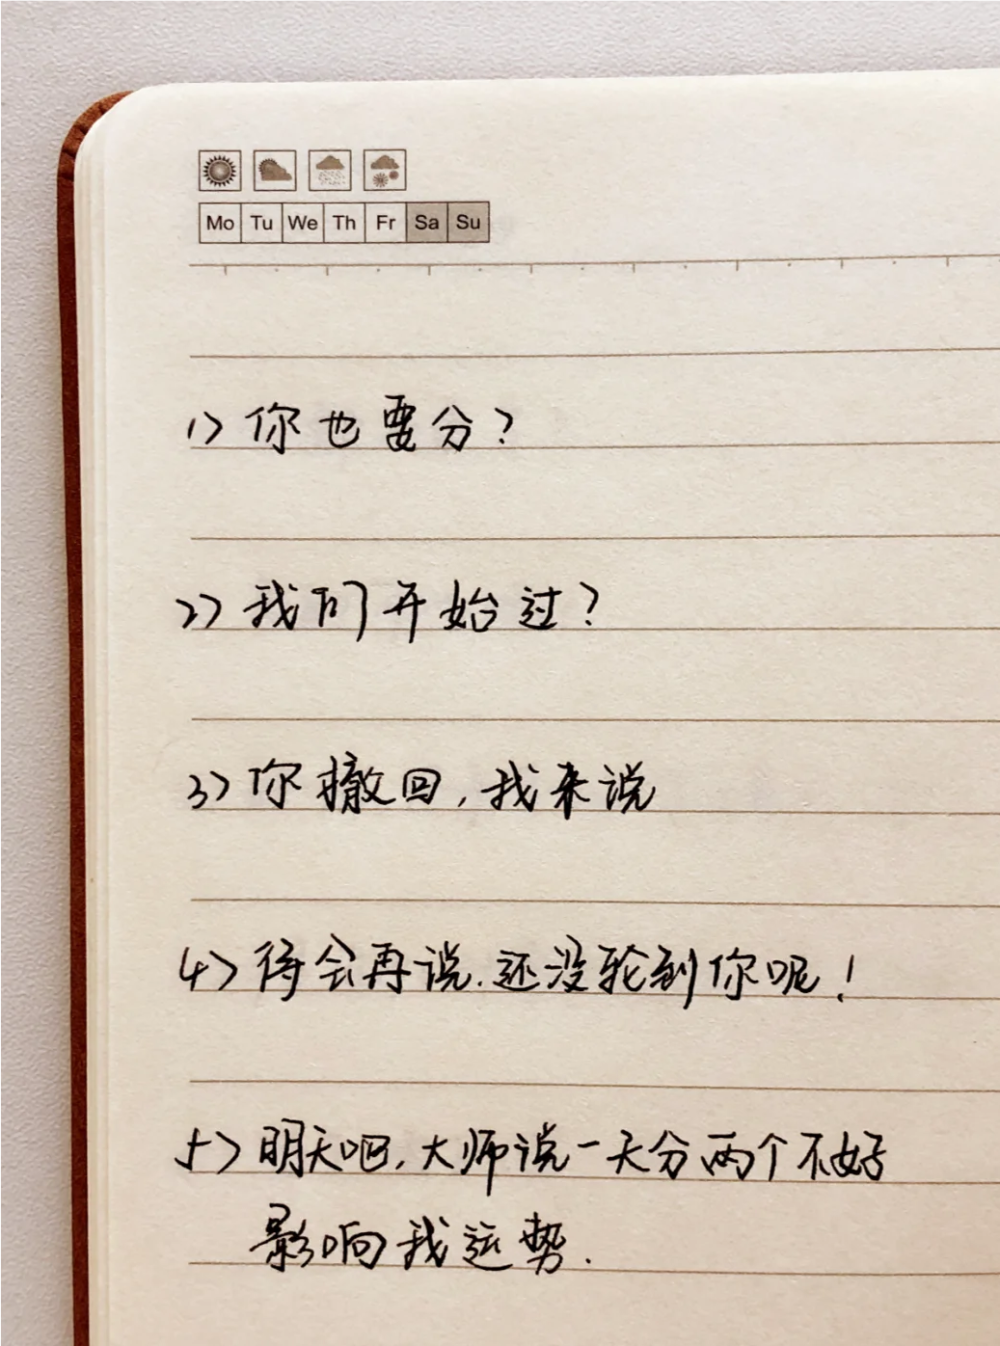 Mo Tu We Th Fr Sa Su
1> 你也要分?
2> 我们开始过?
3> 你撤回,我来说
4> 待会再说.还没轮到你呢!
5> 明天吧,大师说一天分两个不好
影响我运势.